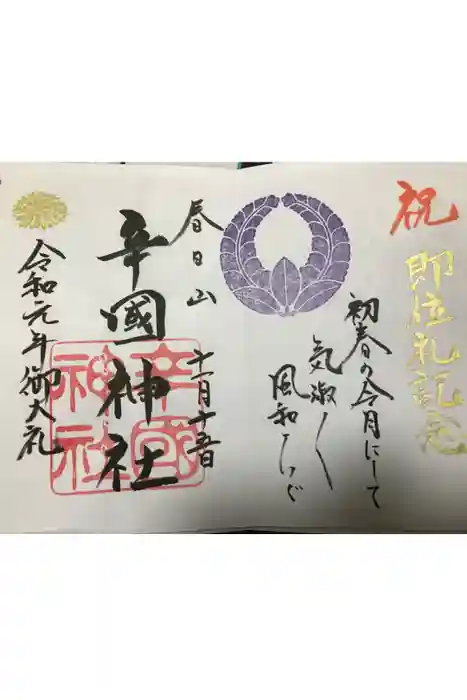 祝
即位礼記念
初春の令月にして
気淑く
風和らぎ
春日山
十一月十五日
辛國神社
辛國神社
令和元年御大礼